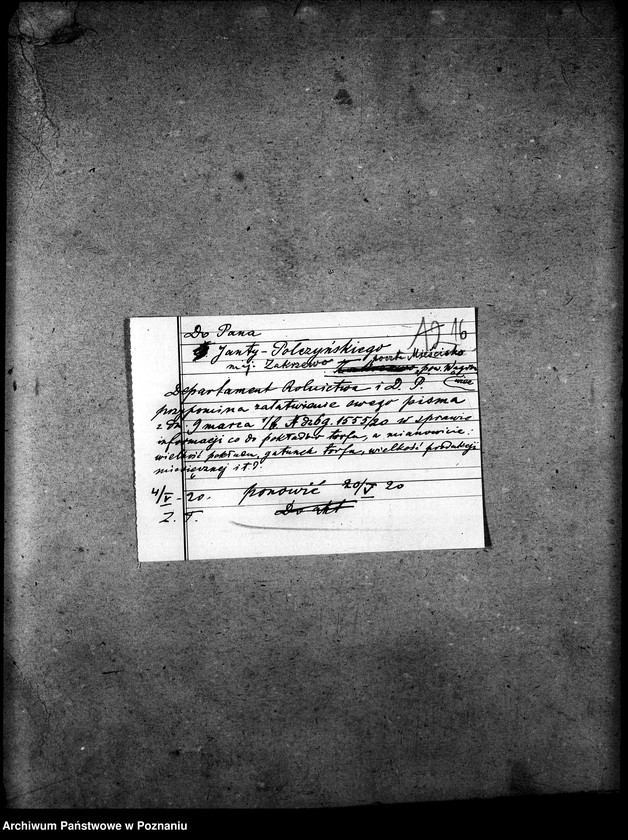 Do Pana
16
Janty-Połczyńskiego
maj. Zakrzewo poczta Mieścisko
pow. Wągro
wiec
Departament Rolnictwa i D. P.
przypomina załatwienie swego pisma
z dn. 9 marca r/b. A dzbg. 1553/20 w sprawie
informacji co do pokładów torfu, a mianowicie:
wielkość pokładu, gatunek torfu, wielkość produkcji
miesięcznej i t.d.
4/V - 20. ponowić 20/V 20
Z. T. Do akt
Archiwum Państwowe w Poznaniu